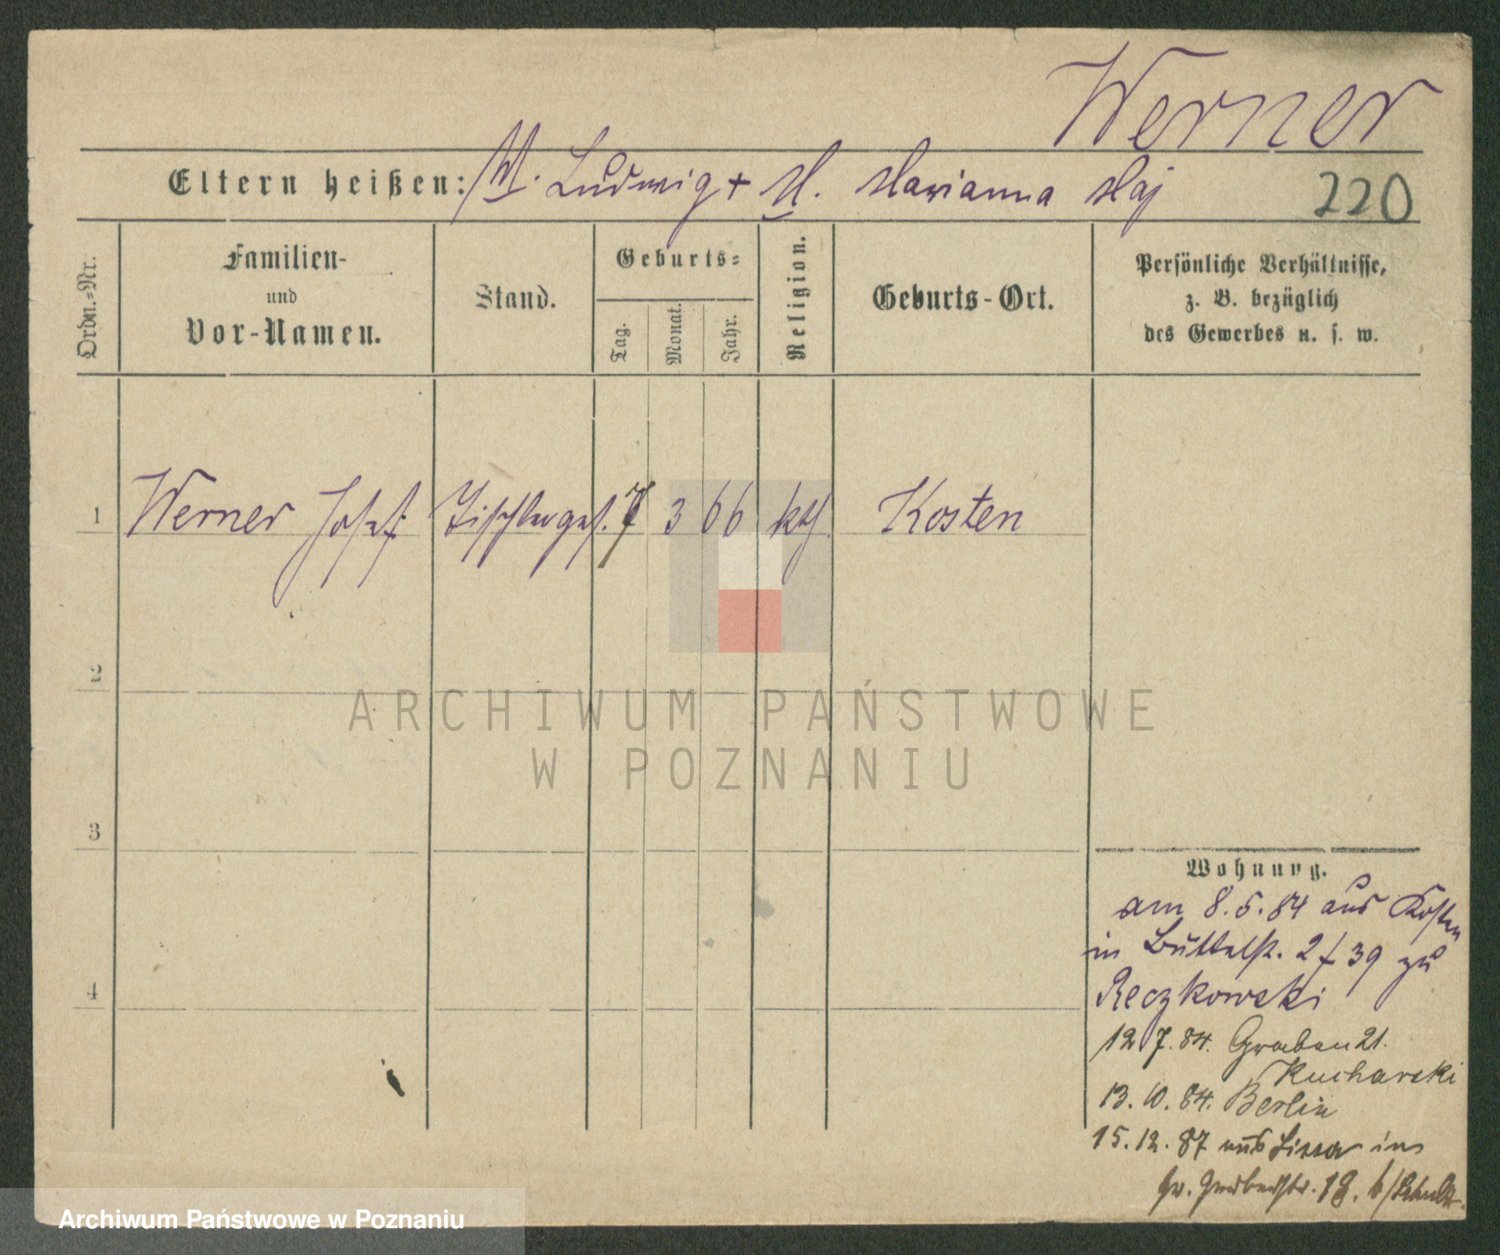 Werner
Eltern heißen: W. Ludwig + M. Marianna Maj
220
Ordn.-Nr.
Familien-
und
Vor-Namen.
Stand.
Geburts-
Tag.
Monat.
Jahr.
Religion.
Geburts-Ort.
Persönliche Verhältnisse,
z. B. bezüglich
des Gewerbes u. s. w.
1 Werner Josef Tischlerges. 7 3 66 kth Kosten
2
ARCHIWUM PAŃSTWOWE
W POZNANIU
3
Wohnung.
am 8.5.84 aus Kosten
in Büttelstr. 2 f 39 zu
4
Reczkowski
12.7.84. Graben 21.
Kucharski
13.10.84. Berlin
15.12.87 aus Lissa in
Gr. Gerberstr. 18. b/
Archiwum Państwowe w Poznaniu